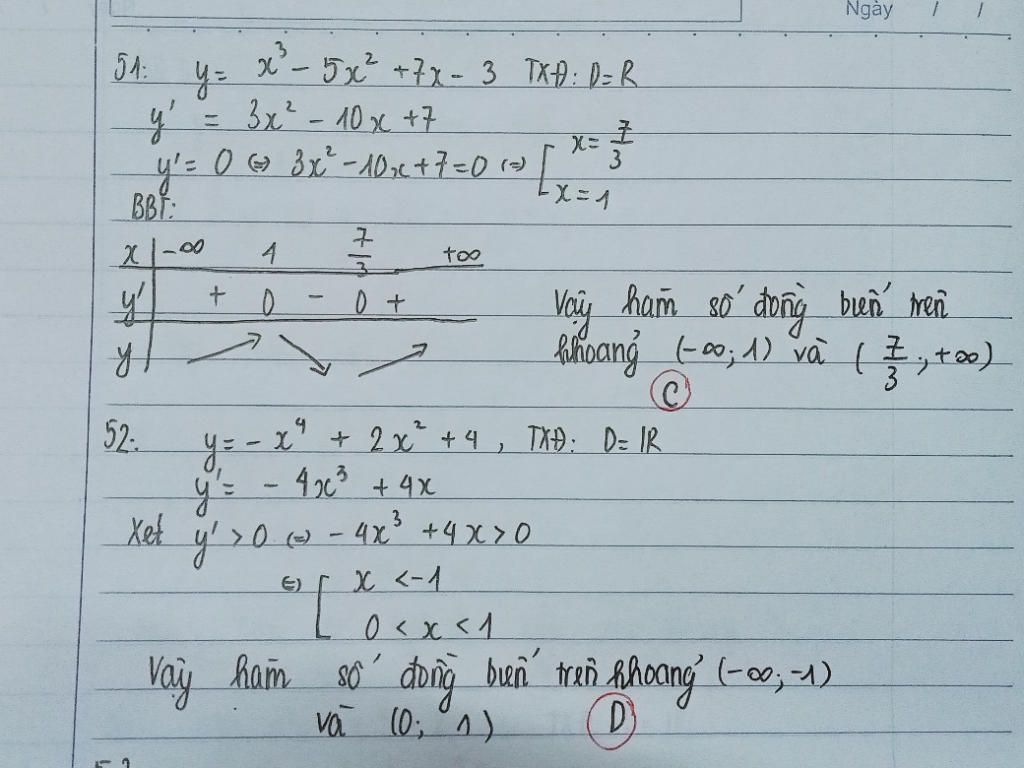 Ngày / /
51: y = x³ - 5x² + 7x - 3 TXĐ: D = R
y' = 3x² - 10x + 7
y' = 0 ⇔ 3x² - 10x + 7 = 0 ⇔ [ x = 7/3
x = 1
BBT:
x | -∞ 1 7/3 +∞
y' | + 0 - 0 +
y | ↗ ↘ ↗
Vậy hàm số đồng biến trên
khoảng (-∞; 1) và (7/3; +∞)
C
52: y = - x⁴ + 2x² + 4, TXĐ: D = ℝ
y' = - 4x³ + 4x
Xét y' > 0 ⇔ - 4x³ + 4x > 0
⇔ [ x < -1
0 < x < 1
Vậy hàm số đồng biến trên khoảng (-∞; -1)
và (0; 1) D